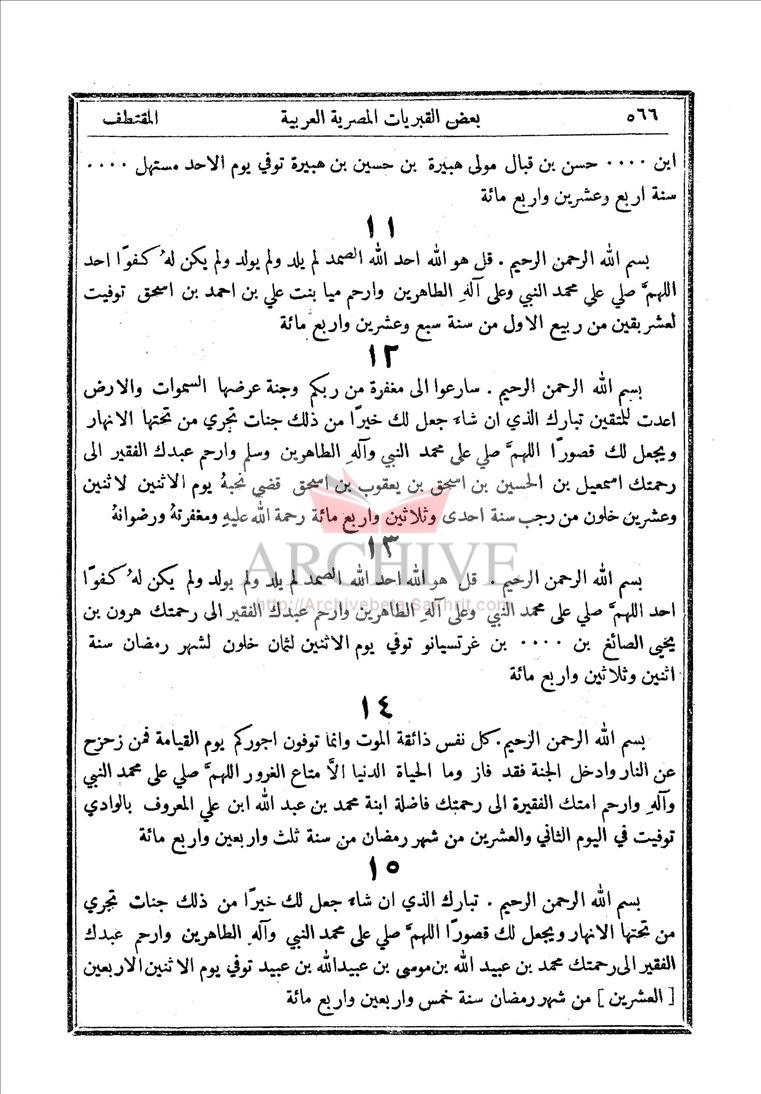 ٥٦٦ بعض القبريات المصرية العربية المقتطف
ابن ٠٠٠٠ حسن بن قبال مولى هبيرة بن حسين بن هبيرة توفي يوم الاحد مستهل ٠٠٠٠
سنة اربع وعشرين واربع مائة
١١
بسم الله الرحمن الرحيم . قل هو الله احد الله الصمد لم يلد ولم يولد ولم يكن لهُ كفوًا احد
اللهمَّ صلي على محمد النبي وعلى آلهِ الطاهرين وارحم ميا بنت علي بن احمد بن اسحق توفيت
لعشر بقين من ربيع الاول من سنة سبع وعشرين واربع مائة
١٢
بسم الله الرحمن الرحيم . سارعوا الى مغفرة من ربكم وجنة عرضها السموات والارض
اعدت للمتقين تبارك الذي ان شاء جعل لك خيرًا من ذلك جنات تجري من تحتها الانهار
ويجعل لك قصورًا اللهمَّ صلي على محمد النبي وآلهِ الطاهرين وسلم وارحم عبدك الفقير الى
رحمتك اسمعيل بن الحسين بن اسحق بن يعقوب بن اسحق قضي نحبهُ يوم الاثنين لاثنين
وعشرين خلون من رجب سنة احدى وثلاثين واربع مائة رحمة الله عليهِ ومغفرتهُ ورضوانهُ
١٣
ARCHIVE
بسم الله الرحمن الرحيم . قل هو الله احد الله الصمد لم يلد ولم يولد ولم يكن لهُ كفوًا
http://Archivebeta.Sakhrit.com
احد اللهمَّ صلي على محمد النبي وعلى آلهِ الطاهرين وارحم عبدك الفقير الى رحمتك هرون بن
يحيى الصائغ بن ٠٠٠٠ بن غرتسيانو توفي يوم الاثنين لثمان خلون لشهر رمضان سنة
اثنين وثلاثين واربع مائة
١٤
بسم الله الرحمن الرحيم . كل نفس ذائقة الموت وانما توفون اجوركم يوم القيامة فمن زحزح
عن النار وادخل الجنة فقد فاز وما الحياة الدنيا الاَّ متاع الغرور اللهمَّ صلي على محمد النبي
وآلهِ وارحم امتك الفقيرة الى رحمتك فاضلة ابنة محمد بن عبد الله ابن علي المعروف بالوادي
توفيت في اليوم الثاني والعشرين من شهر رمضان من سنة ثلث واربعين واربع مائة
١٥
بسم الله الرحمن الرحيم . تبارك الذي ان شاء جعل لك خيرًا من ذلك جنات تجري
من تحتها الانهار ويجعل لك قصورًا اللهمَّ صلي على محمد النبي وآلهِ الطاهرين وارحم عبدك
الفقير الى رحمتك محمد بن عبيد الله بن موسى بن عبيدالله بن عبيد توفي يوم الاثنين الاربعين
[ العشرين ] من شهر رمضان سنة خمس واربعين واربع مائة